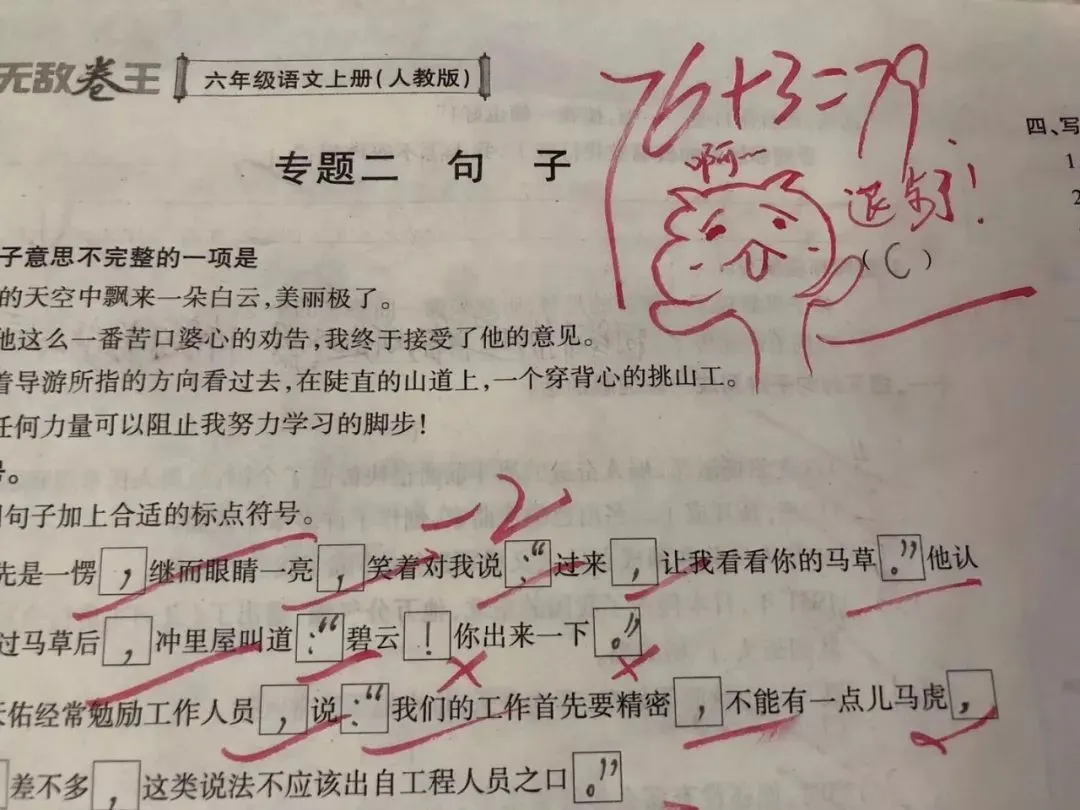 无敌卷王 六年级语文上册(人教版)
76+3=79
专题二 句 子
啊~~
退步了!
子意思不完整的一项是 (C)
的天空中飘来一朵白云,美丽极了。
他这么一番苦口婆心的劝告,我终于接受了他的意见。
着导游所指的方向看过去,在陡直的山道上,一个穿背心的挑山工。
任何力量可以阻止我努力学习的脚步!
号。
句子加上合适的标点符号。
-2
先是一愣,继而眼睛一亮,笑着对我说:“过来,让我看看你的马草。”他认
过马草后,冲里屋叫道:“碧云!你出来一下。”
天佑经常勉励工作人员,说:“我们的工作首先要精密,不能有一点儿马虎,
差不多,这类说法不应该出自工程人员之口。”
四、写
1
2